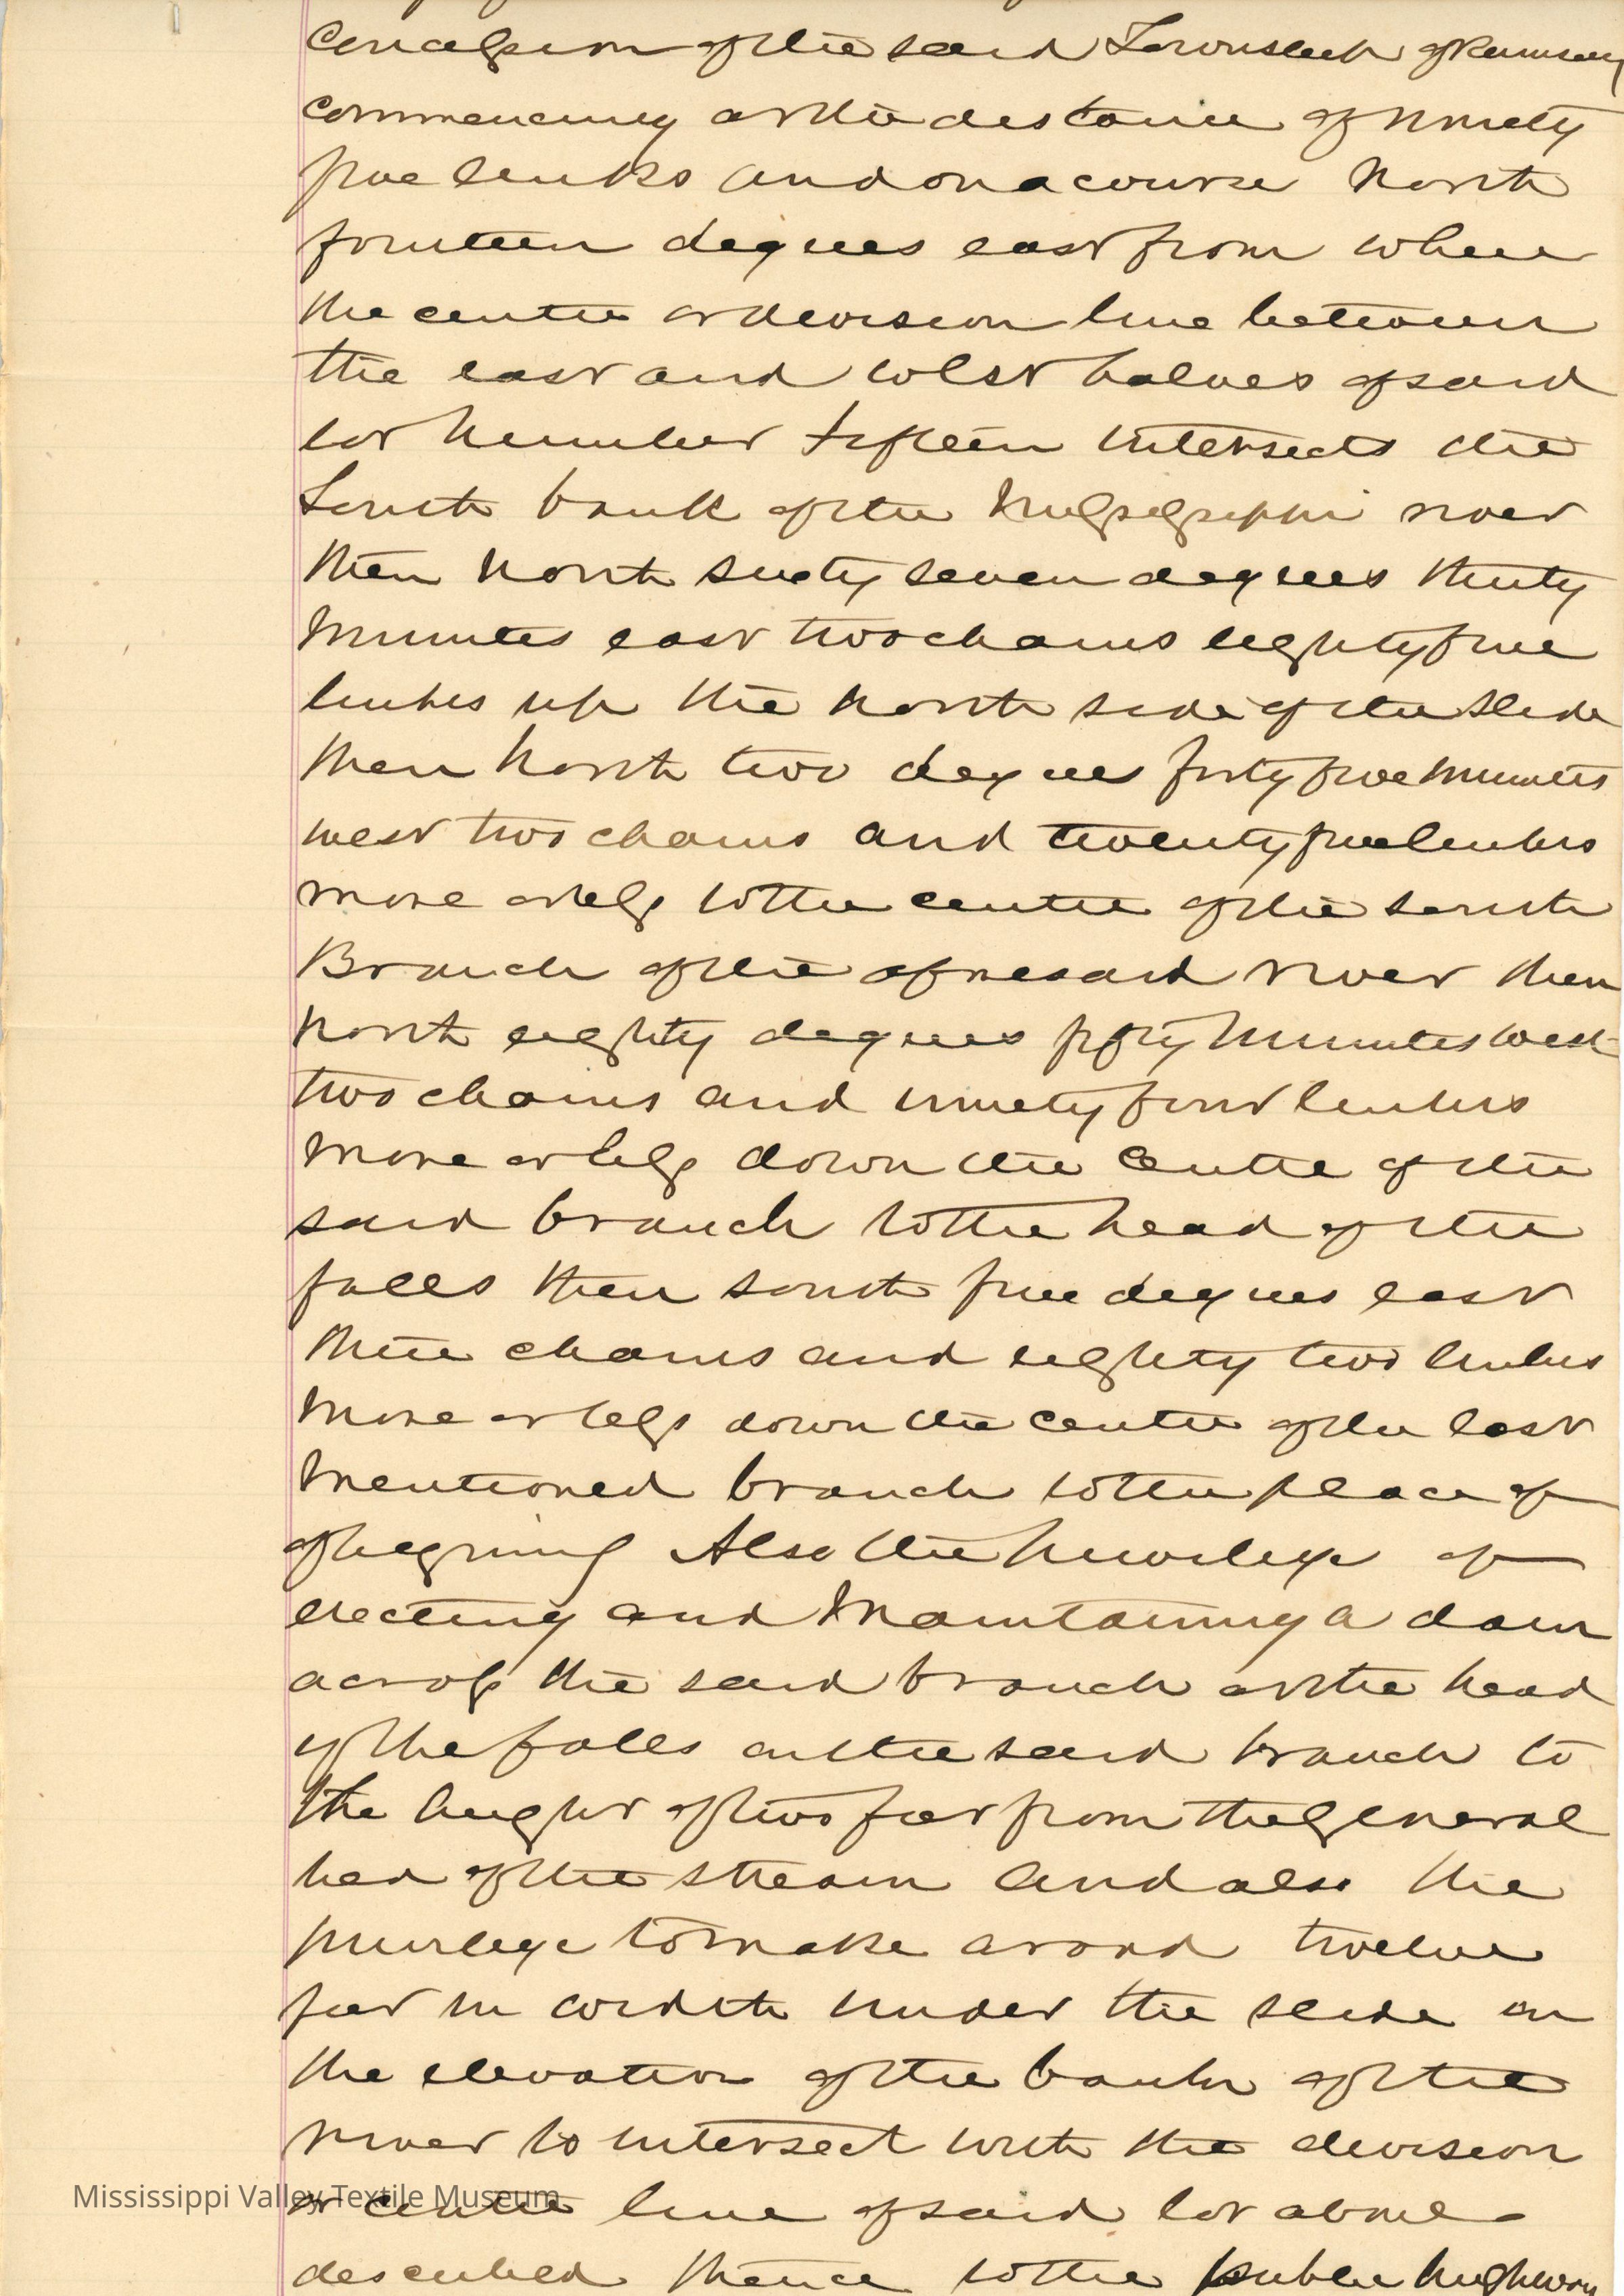 Concession of the said Township of Ramsay
commencing at the distance of ninety
five links and on a course North
fourteen degrees east from where
the centre or division line between
the east and west halves of said
lot Number fifteen intersects the
South bank of the Mississippi river
then North sixty seven degrees thirty
Minutes east two chains eighty five
links up the North side of the slide
then North two degrees forty five Minutes
west two chains and twenty five links
more or less to the centre of the south
Branch of the aforesaid river then
North eighty degrees fifty Minutes West
two chains and ninety four links
more or less down the centre of the
said branch to the head of the
falls then south five degrees east
three chains and eighty two links
more or less down the centre of the last
Mentioned branch to the place of
of begining Also the privilege of
erecting and Maintaining a dam
across the said branch at the head
of the falls on the said branch to
the height of two feet from the general
bed of the stream and also the
privilege to make a road twelve
feet in width under the slide on
the elevation of the banks of the
river to intersect with the division
or centre line of said lot above
described thence to the public highway
Mississippi Valley Textile Museum